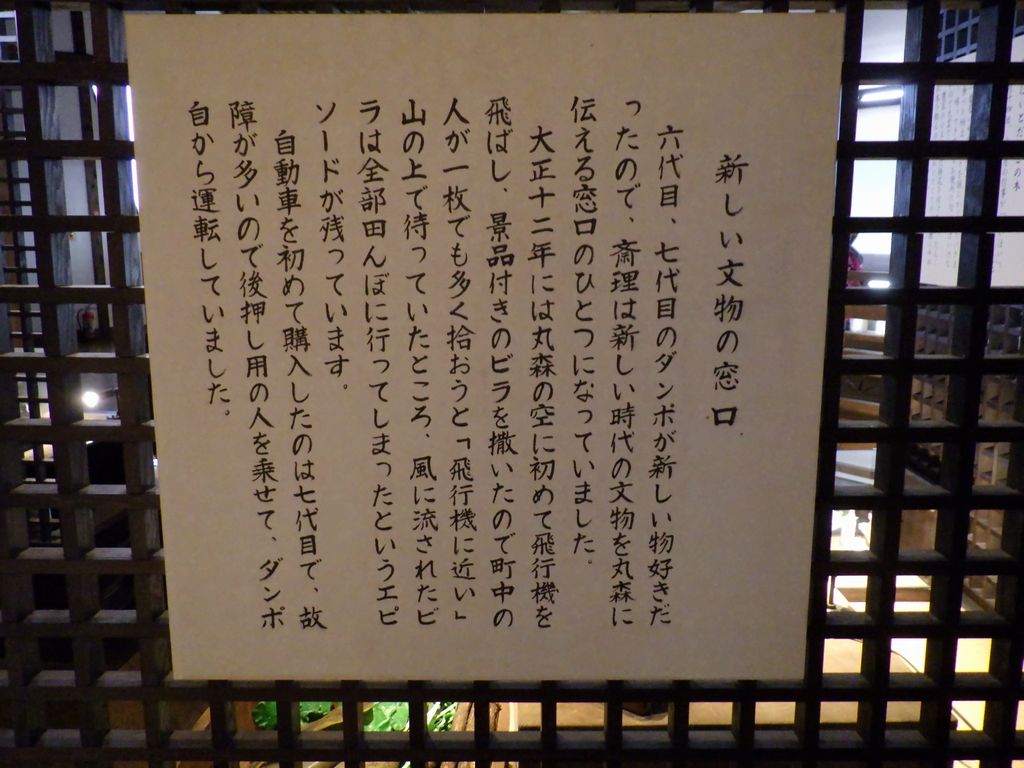 新しい文物の窓口
六代目、七代目のダンポが新しい物好きだ
ったので、斎理は新しい時代の文物を丸森に
伝える窓口のひとつになっていました。
大正十二年には丸森の空に初めて飛行機を
飛ばし、景品付きのビラを撒いたので町中の
人が一枚でも多く拾おうと「飛行機に近い」
山の上で待っていたところ、風に流されたビ
ラは全部田んぼに行ってしまったというエピ
ソードが残っています。
自動車を初めて購入したのは七代目で、故
障が多いので後押し用の人を乗せて、ダンポ
自から運転していました。